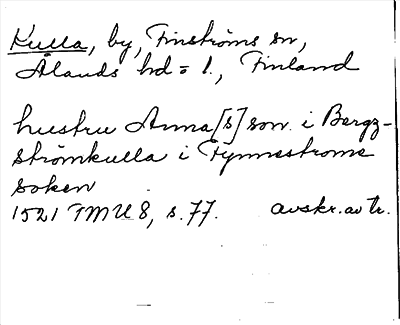 Kulla, by, Finströms sn,
Ålands hd = l., Finland
hustru Anna[s] son i Bergz-
strömkulla i Fynnestroms
soken
1521 TMU 8, s. 77. avskr. av tr.